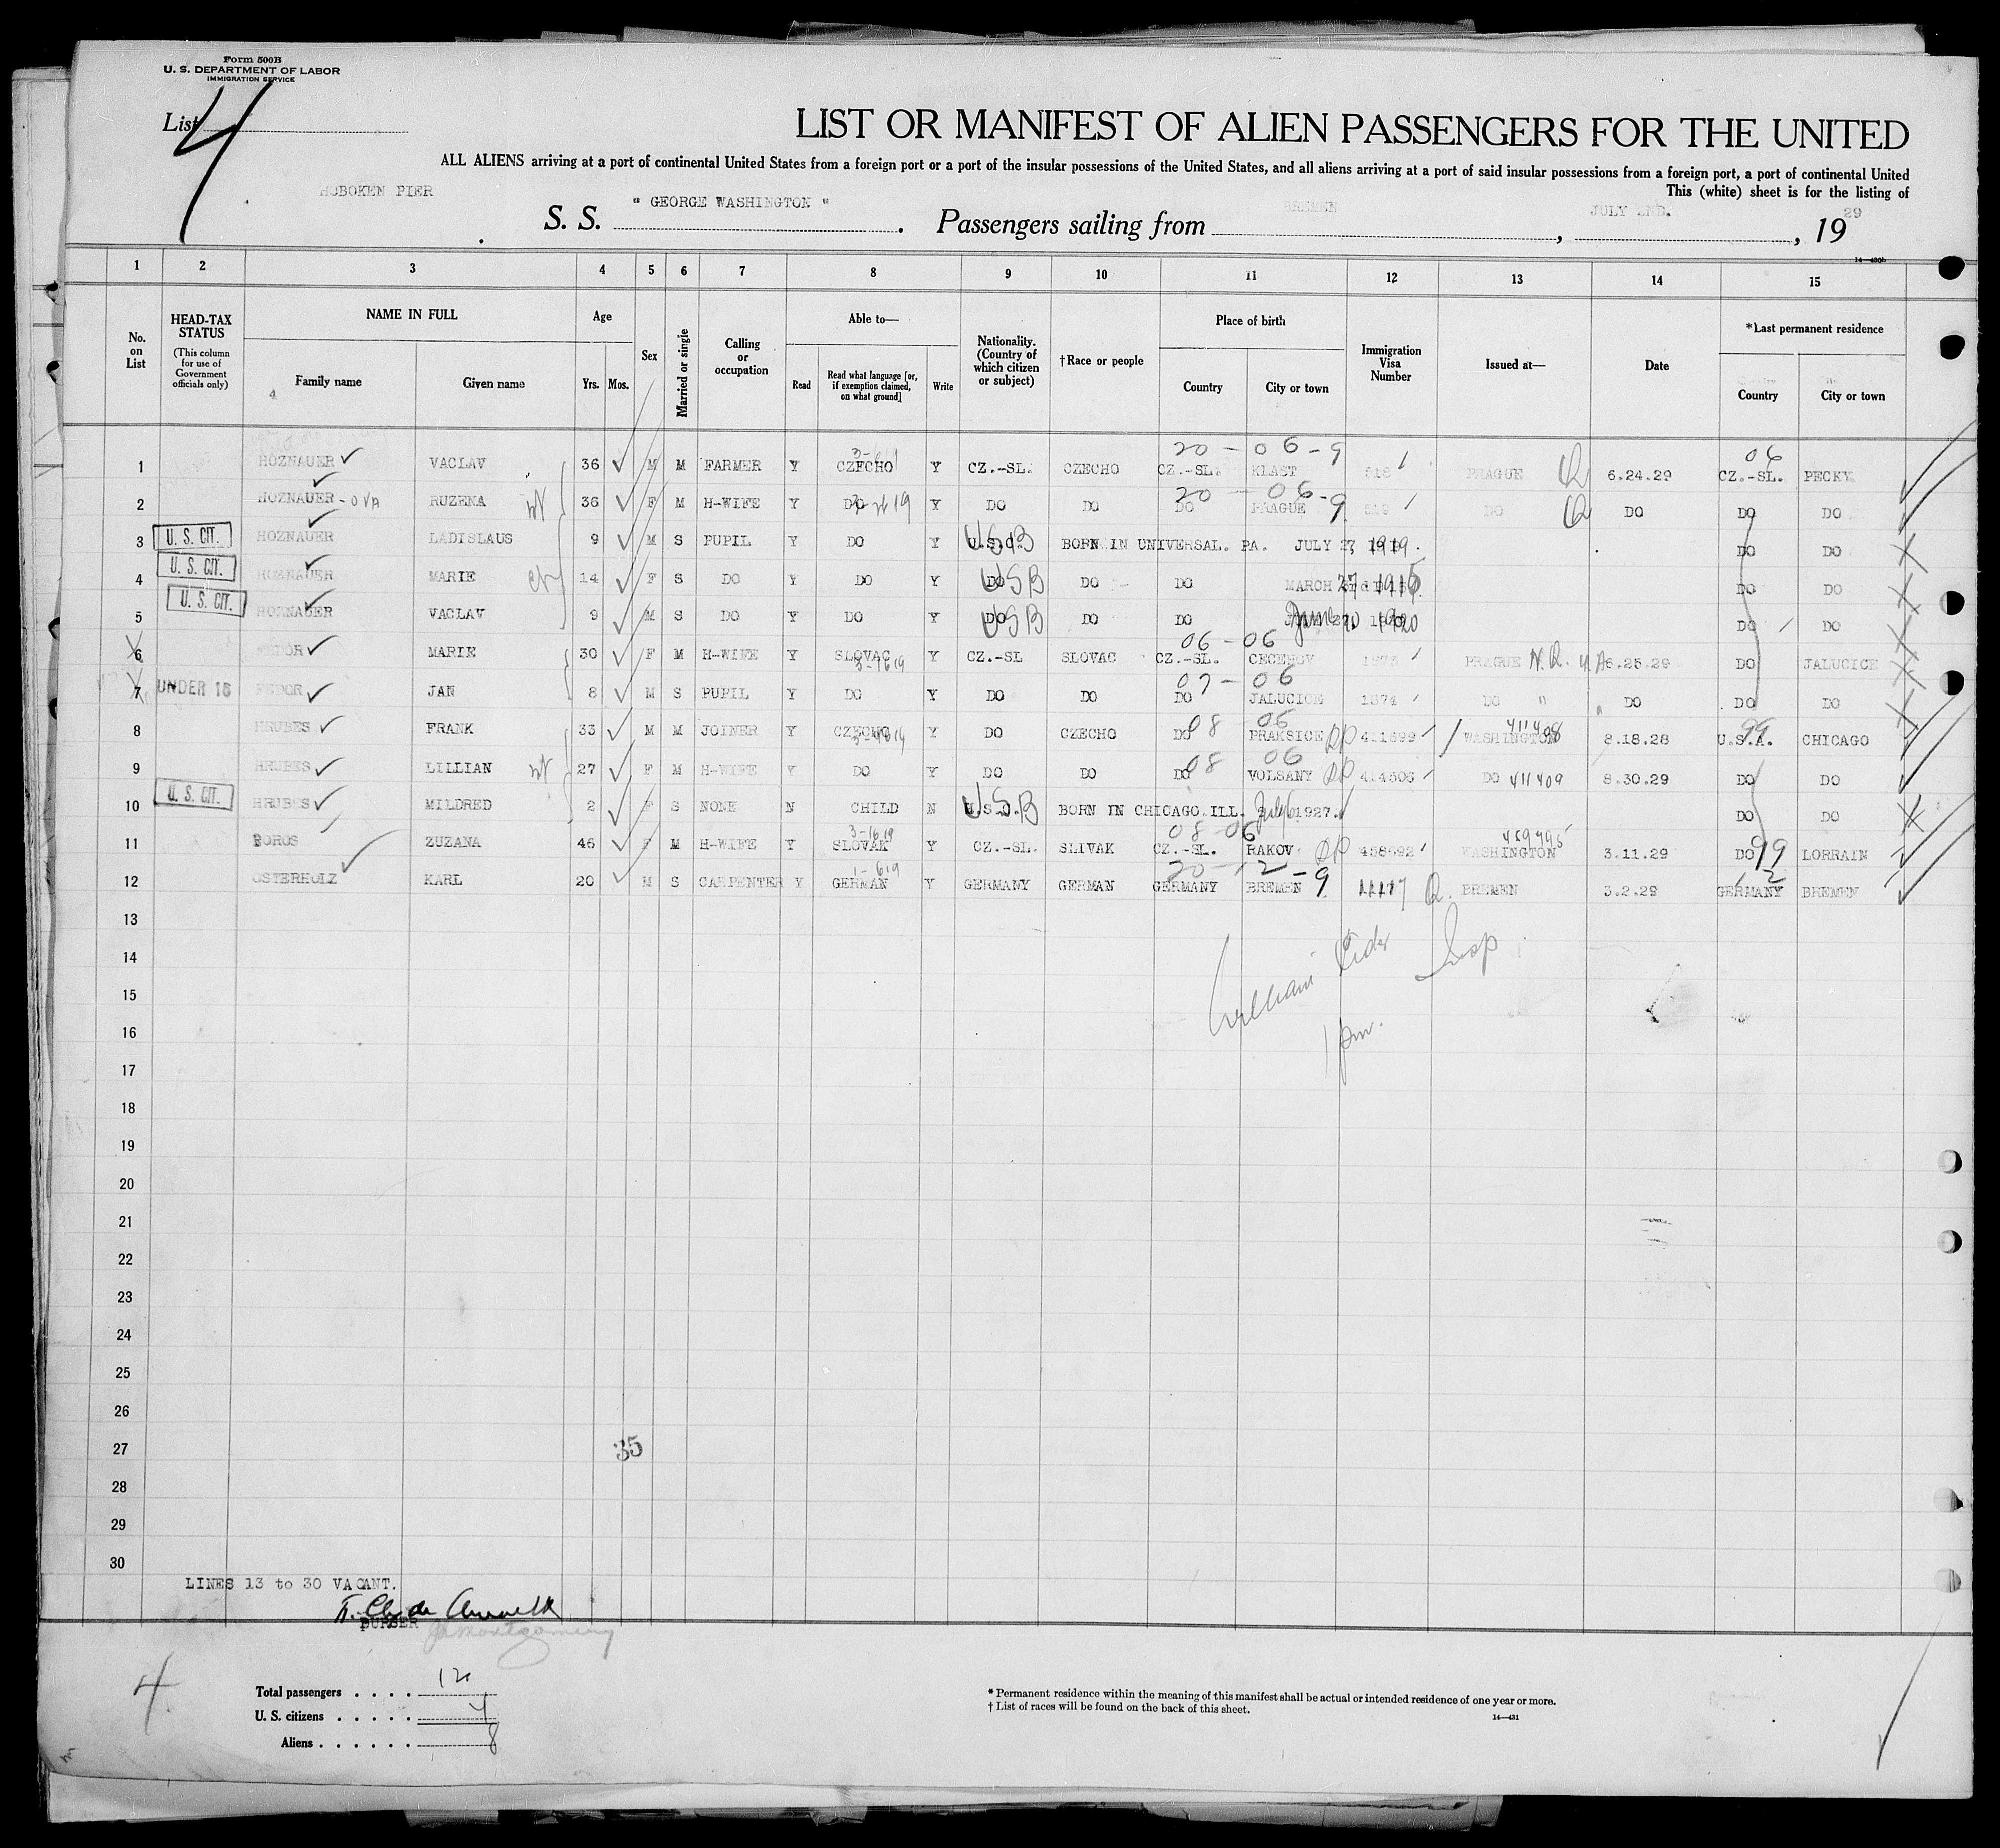 Form 500B
U. S. DEPARTMENT OF LABOR
IMMIGRATION SERVICE
List 4
LIST OR MANIFEST OF ALIEN PASSENGERS FOR THE UNITED
ALL ALIENS arriving at a port of continental United States from a foreign port or a port of the insular possessions of the United States, and all aliens arriving at a port of said insular possessions from a foreign port, a port of continental United
This (white) sheet is for the listing of
HOBOKEN PIER
S. S. " GEORGE WASHINGTON " . Passengers sailing from BREMEN , JULY 2ND. , 19 29
14—430b
1 2 3 4 5 6 7 8 9 10 11 12 13 14 15
No. on List
HEAD-TAX STATUS
(This column for use of Government officials only)
NAME IN FULL
Family name
Given name
Age
Yrs.
Mos.
Sex
Married or single
Calling or occupation
Able to—
Read
Read what language [or, if exemption claimed, on what ground]
Write
Nationality. (Country of which citizen or subject)
†Race or people
Place of birth
Country
City or town
Immigration Visa Number
Issued at—
Date
*Last permanent residence
Country
City or town
20 - 06 - 9 06
1 HOZNAUER VACLAV 36 M M FARMER Y CZECHO Y CZ.-SL. CZECHO CZ.-SL. KLAST 518 PRAGUE Q 6.24.29 CZ.-SL. PECKY
20 - 06 - 9
2 HOZNAUER - OVA RUZENA 36 F M H-WIFE Y DO Y DO DO DO PRAGUE 519 DO Q DO DO DO
3 U. S. CIT. HOZNAUER LADISLAUS 9 M S PUPIL Y DO Y USB BORN IN UNIVERSAL. PA. JULY 27 1919. DO DO
4 U. S. CIT. HOZNAUER MARIE 14 F S DO Y DO Y DO USB DO DO MARCH 27 1915 DO DO
5 U. S. CIT. HOZNAUER VACLAV 9 M S DO Y DO Y DO USB DO DO June 20 1920 DO DO
06 - 06
6 FEDOR MARIE 30 F M H-WIFE Y SLOVAC Y CZ.-SL SLOVAC CZ.-SL. CECENOV 1873 PRAGUE N.Q. 6.25.29 DO JALUCICE
07 - 06
7 UNDER 16 FEDOR JAN 8 M S PUPIL Y DO Y DO DO DO JALUCICE 1874 DO " DO DO DO
8 HRUBES FRANK 33 M M JOINER Y CZECHO Y DO CZECHO DO 08 06 PRAKSICE RP 411699 WASHINGTON 411408 8.18.28 U.S.A. 99 CHICAGO
9 HRUBES LILLIAN 27 F M H-WIFE Y DO Y DO DO DO 08 06 VOLSANY RP 414506 DO 411409 8.30.29 DO DO
10 U. S. CIT. HRUBES MILDRED 2 F S NONE N CHILD N USB BORN IN CHICAGO ILL. July 6 1927. DO DO
3-1619 08-06 459495
11 BOROS ZUZANA 46 F M H-WIFE Y SLOVAK Y CZ.-SL. SLIVAK CZ.-SL. RAKOV RP 458692 WASHINGTON 3.11.29 DO 99 LORRAIN
1-619 20-12-9 12
12 OSTERHOLZ KARL 20 M S CARPENTER Y GERMAN Y GERMANY GERMAN GERMANY BREMEN Q. BREMEN 3.2.29 GERMANY BREMEN
13
14 William Insp
15
16 1 pm.
17
18
19
20
21
22
23
24
25
26
27 35
28
29
30
LINES 13 to 30 VACANT.
PURSER
JAMontgomery
4
Total passengers . . . . 12
U. S. citizens . . . . . 4
Aliens . . . . . . 8
* Permanent residence within the meaning of this manifest shall be actual or intended residence of one year or more.
† List of races will be found on the back of this sheet.
14—431